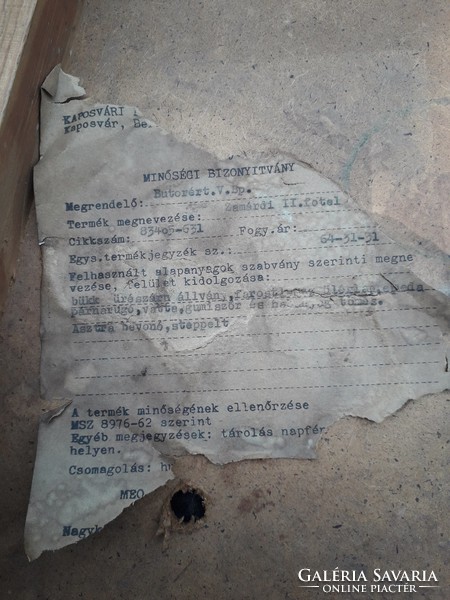 KAPOSVÁRI
Kaposvár, Be
MINŐSÉGI BIZONYITVÁNY
Butorért.V.Bp.
Megrendelő:
Zamárdi II.fotel
Termék megnevezése:
Cikkszám: 83405-631 Fogy.ár:
Egys.termékjegyzék sz.: 64-31-31
Felhasznált alapanyagok szabvány szerinti megne
vezése, felület kidolgozása:
bükk állvány,
párnarugó,vatta,gumiszőr és
Asztra bevonó,steppelt
A termék minőségének ellenőrzése
MSZ 8976-62 szerint
Egyéb megjegyzések: tárolás napfé
helyen.
Csomagolás: hu
MEO
Nagyk
GALÉRIA SAVARIA
ONLINE PIACTÉR